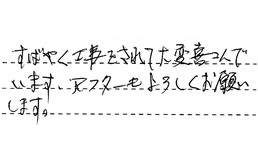 すばやく工事をされてた変喜こんで
います、アフターもよろしくお願い
します。